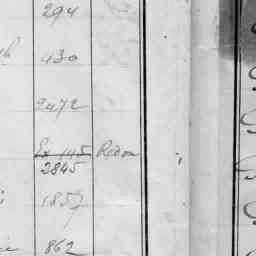 294
430
2472
Ex 145 Redon
2845
1857
862